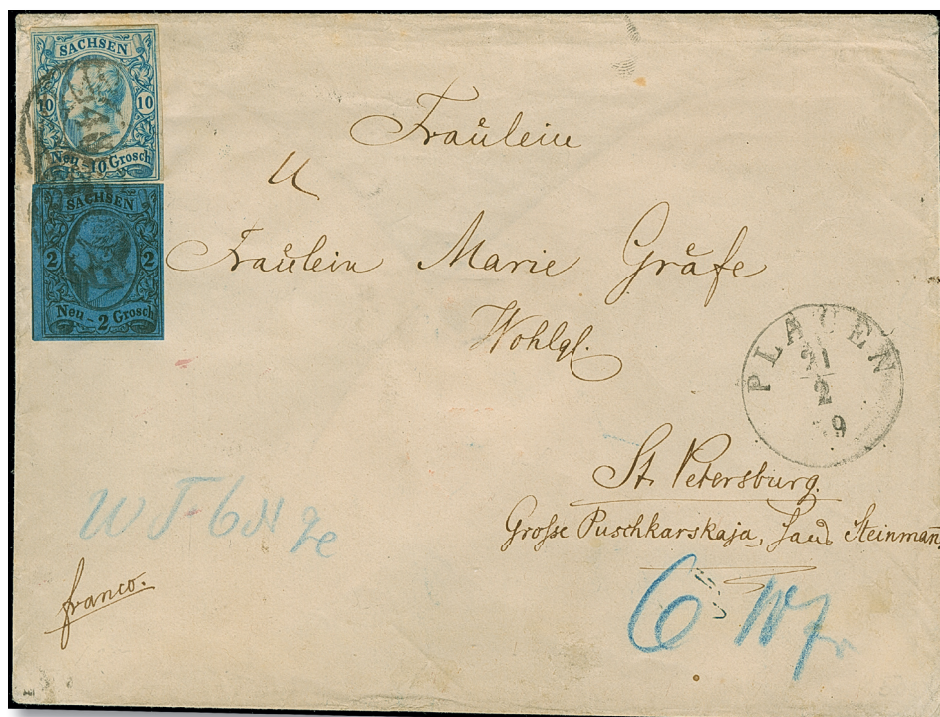 SACHSEN
10 10
Neu-10 Grosch
SACHSEN
2 2
Neu-2 Grosch
Fräulein
Fräulein Marie Gräfe
Wohlgl.
PLAUEN
21
2
St. Petersburg.
Grosse Puschkarskaja, Steinmann
franco.
6